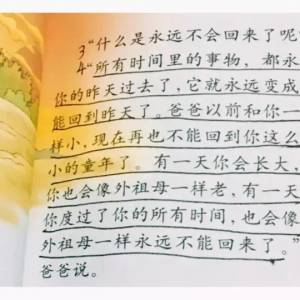 3“什么是永远不会回来了呢
4“所有时间里的事物，都永
你的昨天过去了，它就永远变成
能回到昨天了。爸爸以前和你一
样小，现在再也不能回到你这么
小的童年了。有一天你会长大，
你也会像外祖母一样老，有一天
你度过了你的所有时间，也会像
外祖母一样永远不能回来了。”
爸爸说。